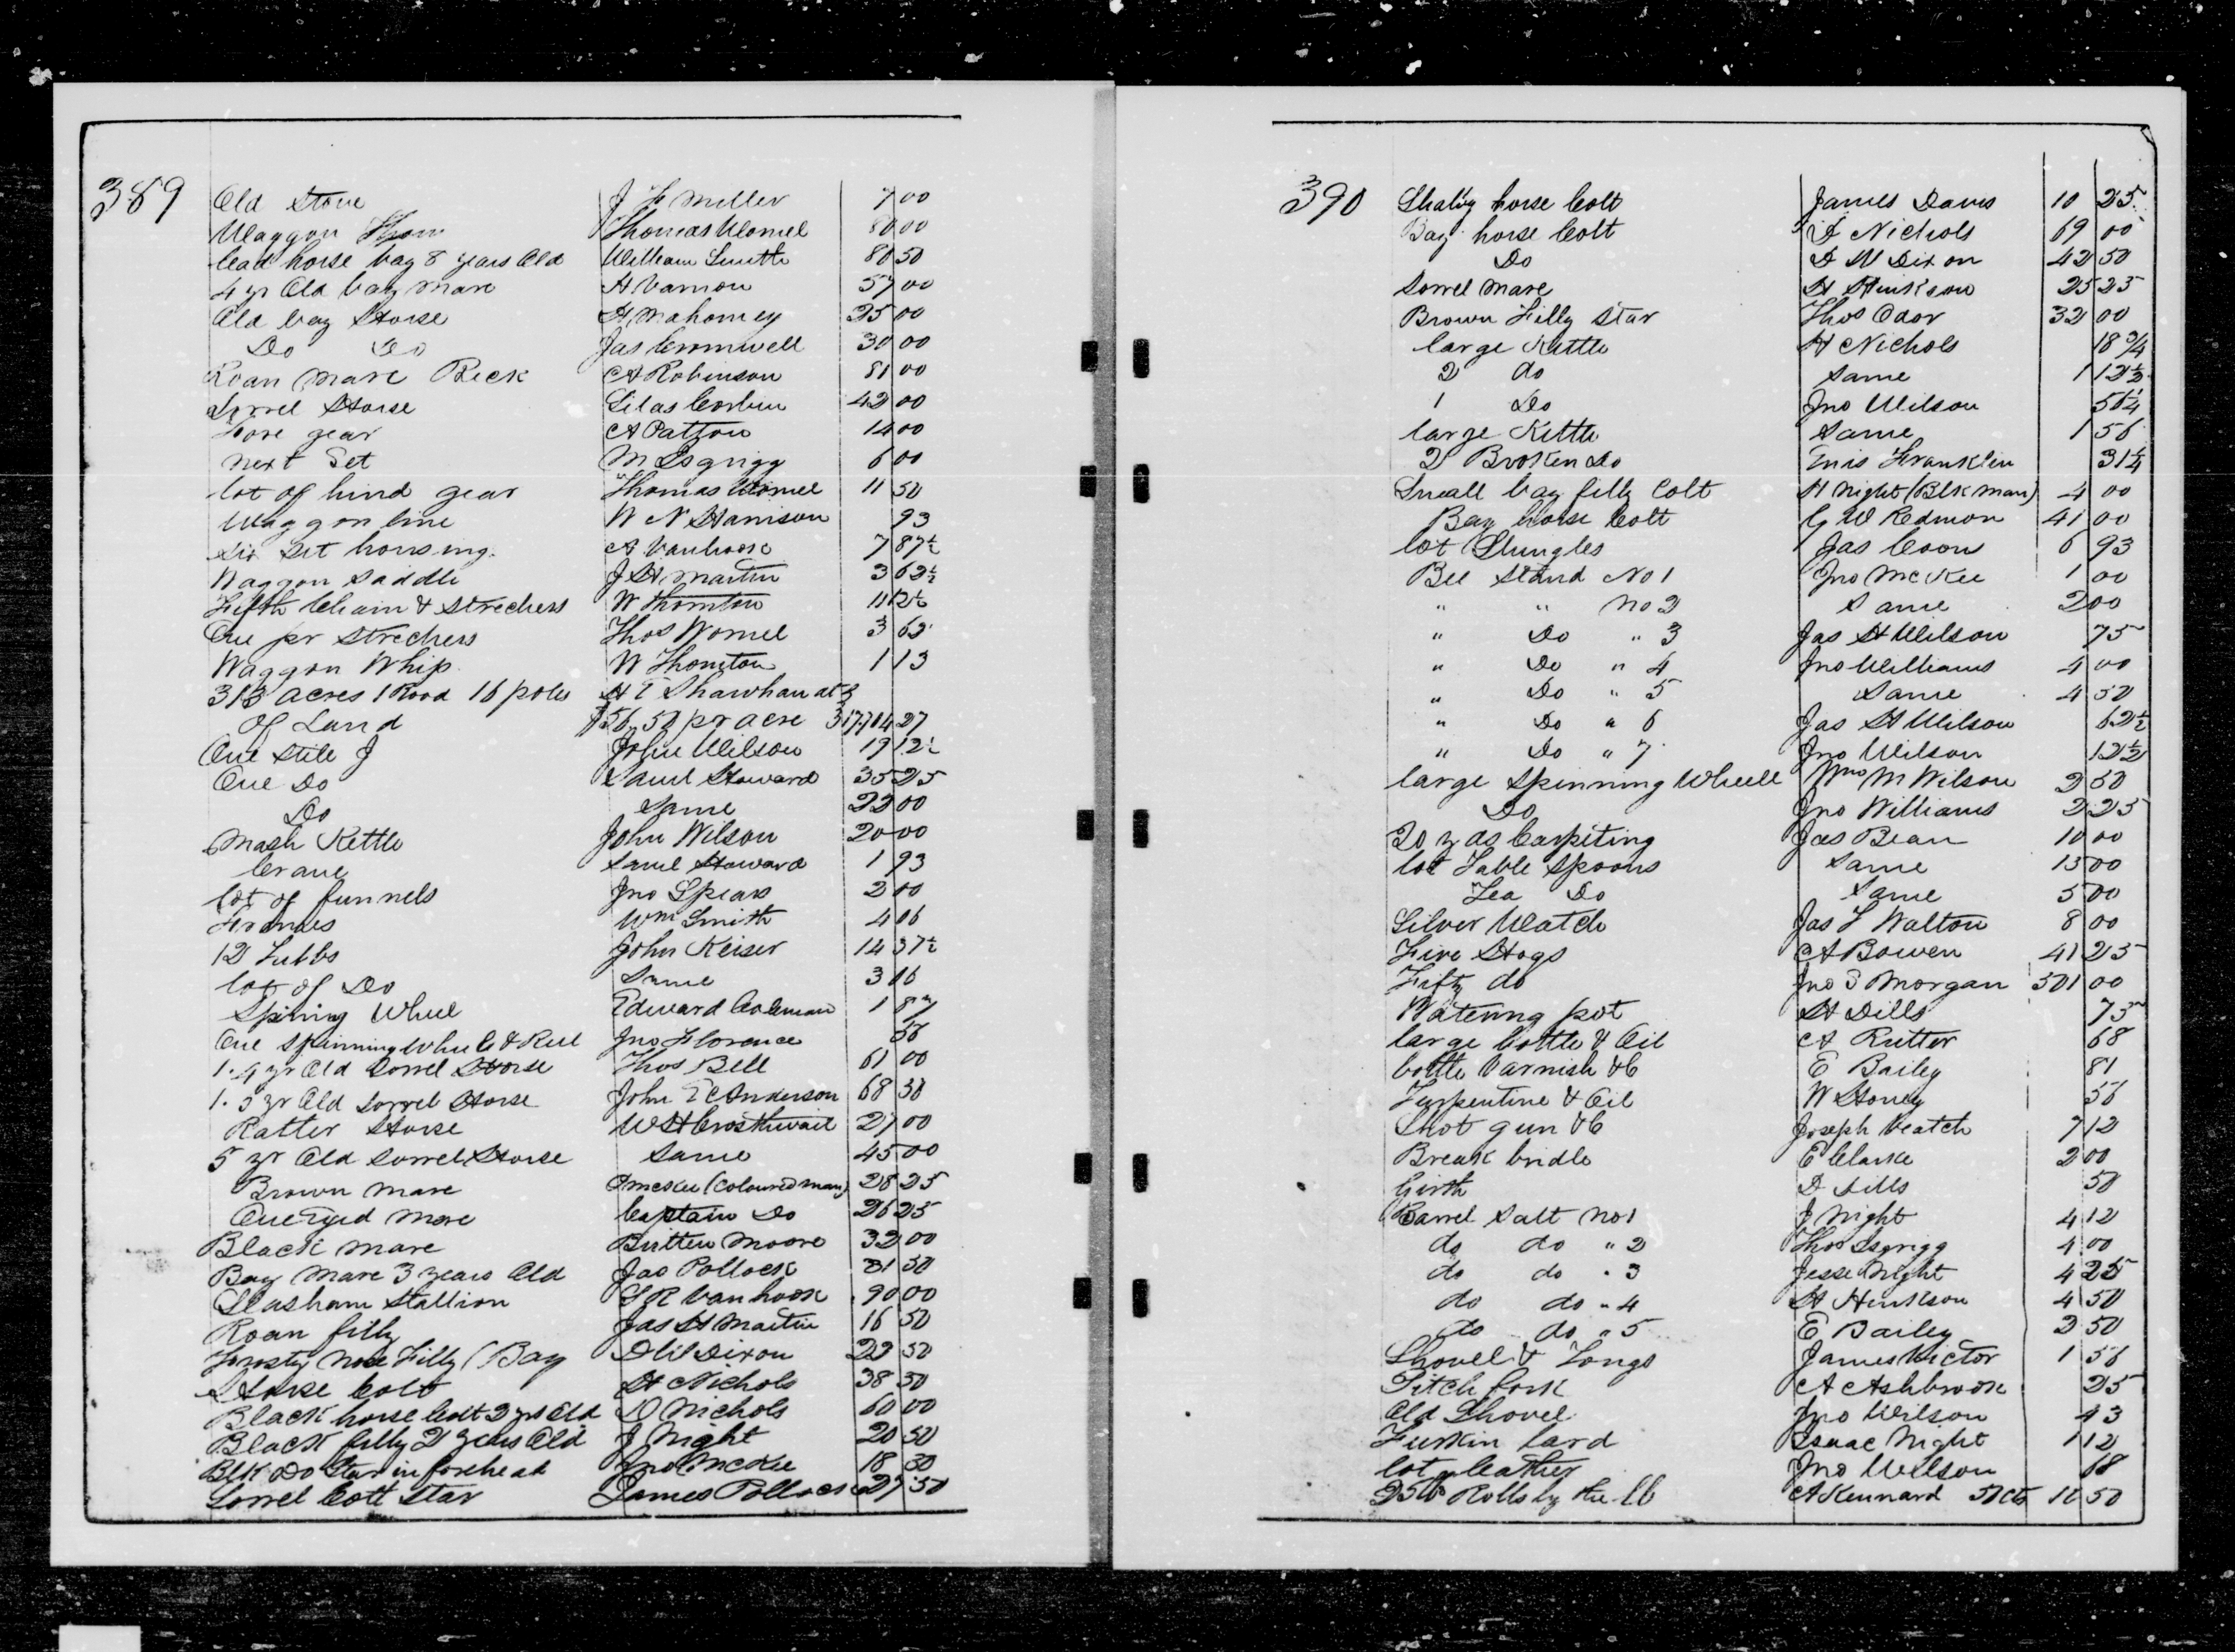 389
Old Stove J F Miller 7 00
Waggon Thomas Womel 80 00
lead horse bay 8 years Old William Smith 80 50
4 yr Old bay mare A Varnon 57 00
Old bay Horse H Mahorney 25 00
Do Do Jas Cromwell 30 00
Roan mare Beck A Robinson 81 00
Sorrel Horse Silas Corbin 42 00
Fore gear A Patton 14 00
next Set M Isgrigg 6 00
lot of hind gear Thomas Womel 11 50
Waggon line W N Harrison 93
Six Set housing A Vanhook 7 87½
Waggon Saddle J H Martin 3 62½
Fifth Chain & Strechers W Thornton 11 12½
One pr Strechers Thos Womel 3 62
Waggon Whip W Thornton 1 13
313 acres 1 Rood 16 poles H E Shawhan at
of Land $56.50 pr acre 17704 27
One Still John Wilson 19 12½
One Do Saml Howard 35 25
Do Same 22 00
Mash Kettle John Wilson 20 00
Crane Saml Howard 1 93
lot of funnels Jno Spears 2 00
Wm Smith 4 06
12 Tubbs John Keiser 14 37½
lot of Do Same 3 16
Spining Wheel Edward Coleman 1 87
One Spinning Wheele & Reel Jno Florence 56
1. 4 yr Old Sorrel Horse Thos Bell 61 00
1. 5 yr Old Sorrel Horse John E Anderson 68 50
Ratler Horse W H Crosthwait 27 00
5 yr Old Sorrel Horse Same 45 00
Brown mare McKee (Coloured man) 28 25
One Eyed mare Captain Do 26 25
Black mare Britten Moore 32 00
Bay mare 3 years Old Jas Pollock 31 50
Stallion Vanhook 90 00
Roan filly Jas H Martin 16 50
Frosty nose Filly (Bay D W Dixon 22 50
Horse Colt H Nichols 38 50
Black horse Colt 2 yrs Old D Nichols 60 00
Black filly 2 years Old J Night 20 50
Blk Do Star in forehead Jno McKee 18 50
Sorrel Colt Star James Pollock 27 50
390
horse Colt James Davis 10 25
Bay horse Colt Nichols 69 00
Do D W Dixon 42 50
Sorrel mare H Hinkson 25 25
Brown Filly Star Thos Odor 32 00
large Kittle H Nichols 18¾
2 do Same 1 12½
1 Do Jno Wilson 56¼
large Kittle Same 1 56
2 Broken Do Enis Franklin 31¼
Small bay filly Colt H Night (Blk man) 4 00
Bay horse Colt G W Redmon 41 00
lot Shingles Jas Coons 6 93
Bee Stand No 1 Jno McKee 1 00
" " No 2 Same 2 00
" Do " 3 Jas H Wilson 75
" Do " 4 Jno Williams 4 00
" Do " 5 Same 4 50
" Do " 6 Jas H Wilson 62½
" Do " 7 Jno Wilson 12½
large Spinning Wheele M Wilson 2 50
Do Jno Williams 2 25
20 yds Carpiting Jas Bean 10 00
lot Table Spoons Same 15 00
Tea Do Same 5 00
Silver Watch Jas Walton 8 00
Five Hogs A Bowen 41 25
Fifty do Jno Morgan 501 00
Watering pot H Dills 75
large bottle & Oil A Rutter 68
bottle Varnish &C E Bailey 81
Turpentine & Oil W Honey 56
Shot gun &C Joseph Veatch 7 12
Break bridle E Clarke 2 00
Girth D Dills 50
Barrel Salt No 1 J Night 4 12
do do " 2 Thos Isgrigg 4 00
do do " 3 Jesse Night 4 25
do do " 4 H Hinkson 4 50
do do " 5 E Bailey 2 50
Shovel & Tongs James Victor 1 56
Pitch fork A Ashbrook 25
Old Shovel Jno Wilson 43
Furkin lard Isaac Night 1 12
lot leather Jno Wilson 68
Rolls by the lb A Kennard 50 cts 12 50